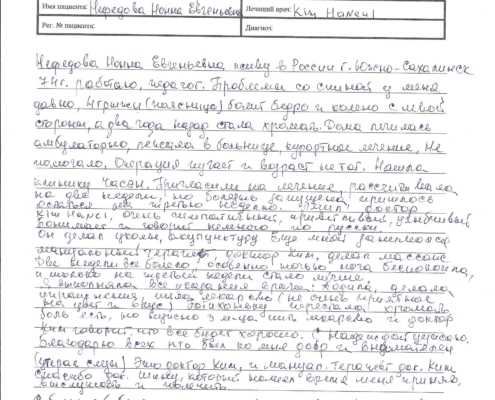 Имя пациента: Нефедова Нонна Евгеньевна Лечащий врач: Kim Haneul
Рег. № пациента: Диагноз:
Нефедова Нонна Евгеньевна живу в России г. Южно-Сахалинск
74 г. работаю, педагог. Проблемы со спиной у меня
давно, 4 грыжи (поясница) болит бедро и колено с левой
стороны, а два года назад стала хромать. Дома лечилась
амбулаторно, лежала в больнице, курортное лечение. Не
помогало. Операция пугает и возраст не тот. Нашла
клинику Часэн. Пригласили на лечение, рассчитывала
на две недели, но болезнь запущена, пришлось
остаться на третью неделю. доктор
Kim Haneul, очень симпатичный, приветливый, улыбчивый
понимает и говорит немного по русски.
Он делал уколы, акупунктуру Еще мной занимался
мануальный терапевт доктор Ким, делал массаж
Две недели все болело, особенно ночью нога беспокоила,
и только на третьей недели стало лучше
Я выполняла все указания врача: ходила, делала
упражнения, пила лекарство не очень приятное
на цвет и вкус. Потихоньку перестала хромать
боль есть, но нужно 3 м-ца пить лекарство и доктор
Ким говорит, что все будет хорошо. С Надеждой
Благодарю всех кто был ко мне добр и внимателен
Это доктор Ким, и мануал. Терапевт док. Ким
спасибо док. который все время меня принял,
выслушать и полечить